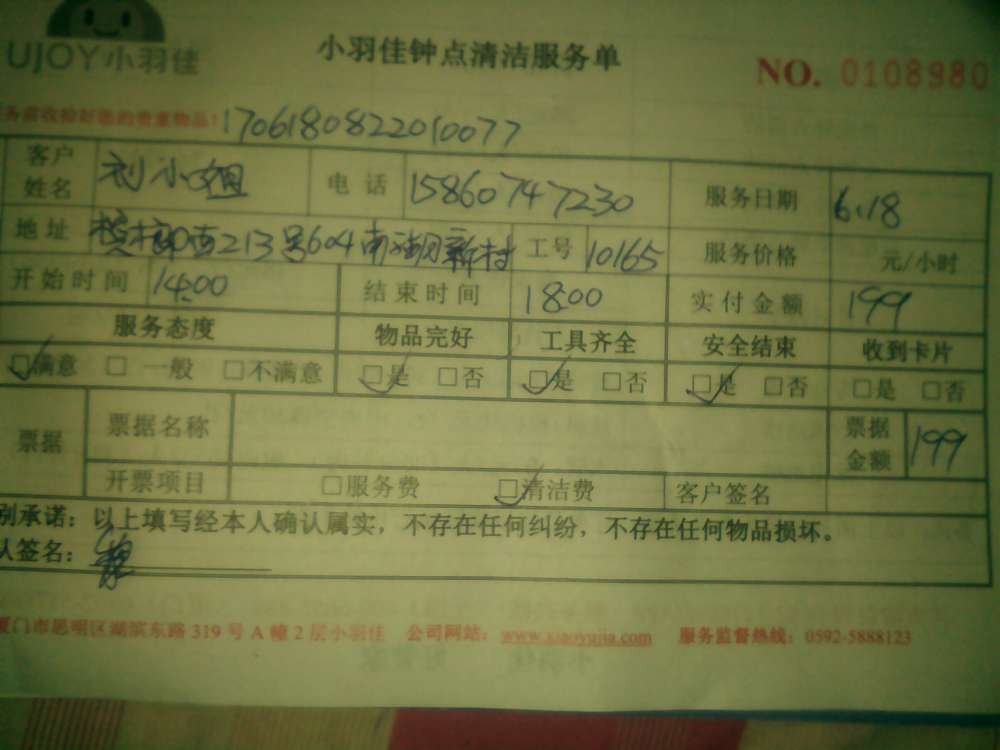 UJOY小羽佳
小羽佳钟点清洁服务单
NO. 0108980
务前收拾好您的贵重物品!
170618082201 0077
客户姓名 刘小姐 电话 15860747230 服务日期 6.18
地址 213号604南湖新村 工号 10165 服务价格 元/小时
开始时间 14:00 结束时间 18:00 实付金额 199
服务态度 物品完好 工具齐全 安全结束 收到卡片
□满意 □一般 □不满意 □是 □否 □是 □否 □是 □否 □是 □否
票据 票据名称 票据金额 199
开票项目 □服务费 □清洁费 客户签名
别承诺:以上填写经本人确认属实,不存在任何纠纷,不存在任何物品损坏。
人签名:
厦门市思明区湖滨东路 319 号 A 幢 2 层小羽佳 公司网站:www.xiaoyujia.com 服务监督热线:0592-5888123